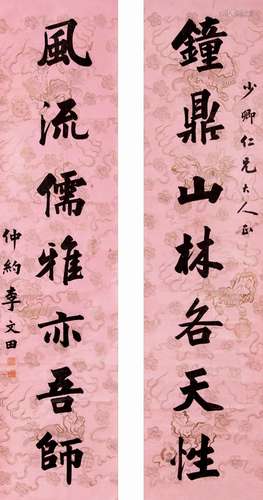 鐘鼎山林各天性
少卿仁兄大人正
風流儒雅亦吾師
仲約李文田